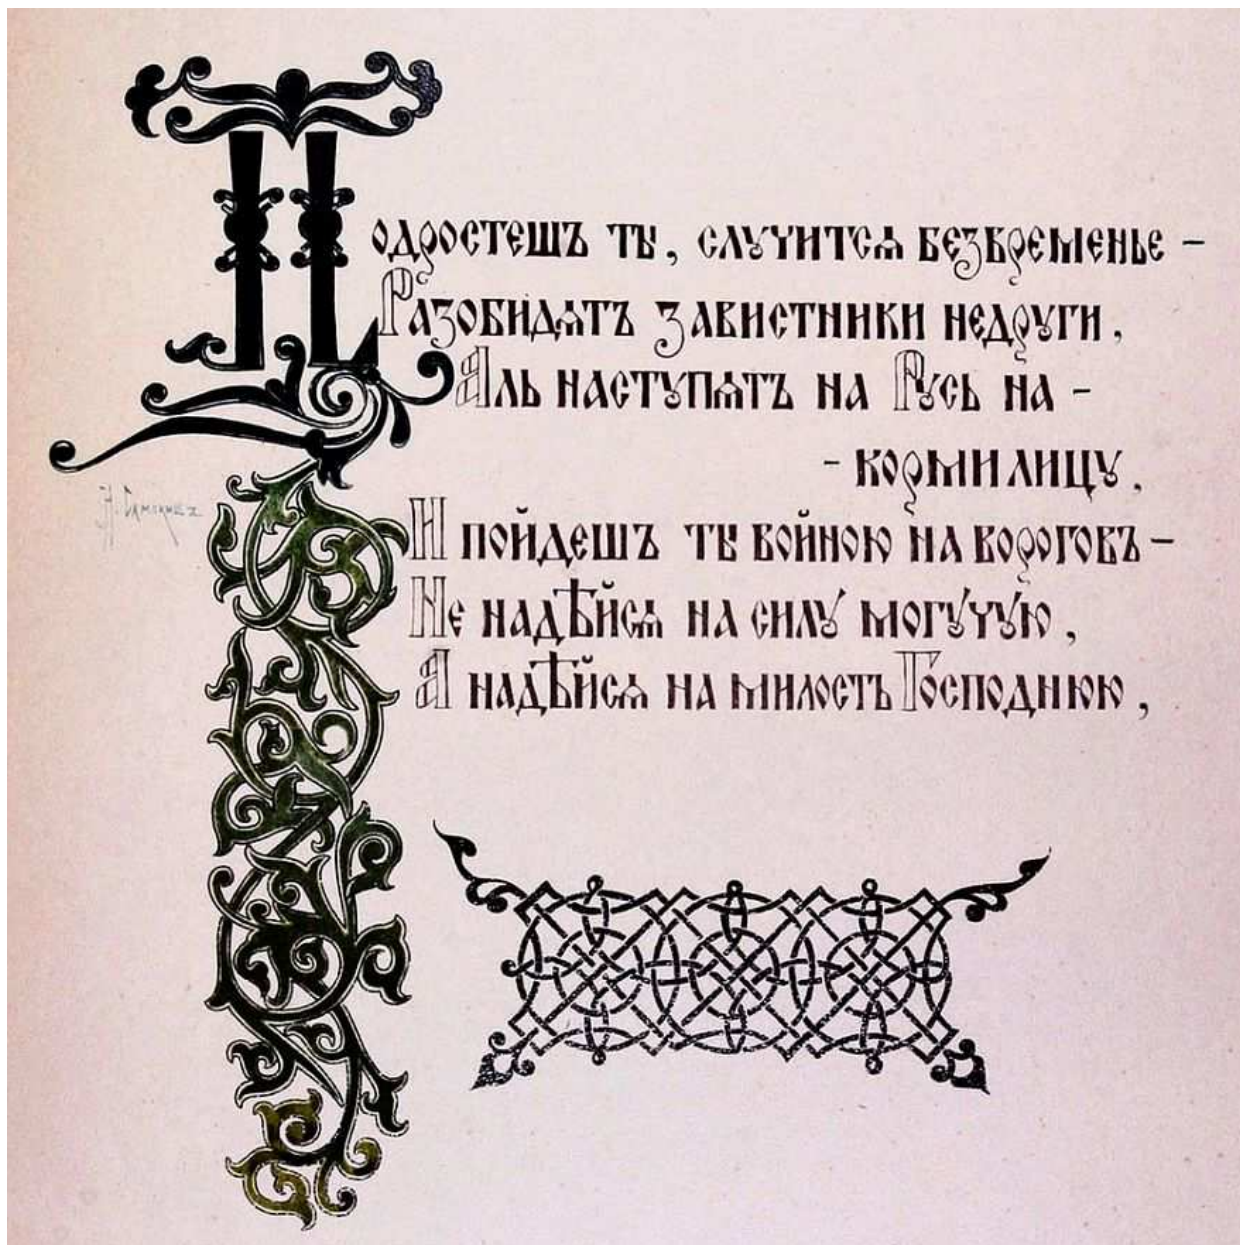 Подростешъ ты, случится безвременье –
Разобидятъ завистники недруги,
Аль наступятъ на Русь на –
– кормилицу,
И пойдешъ ты войною на ворогов –
Не надѣйся на силу могучую,
А надѣйся на милость Господнюю,